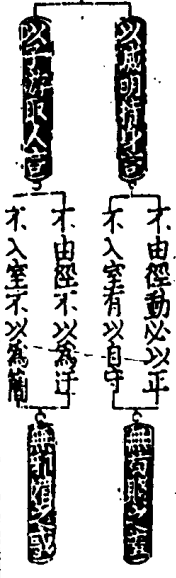 以滅明持身言
不由徑動必以正
不入室有以自守
無苟賤之羞
以子游取人言
不由徑不以為迂
不入室不以為簡
無邪媚之惑